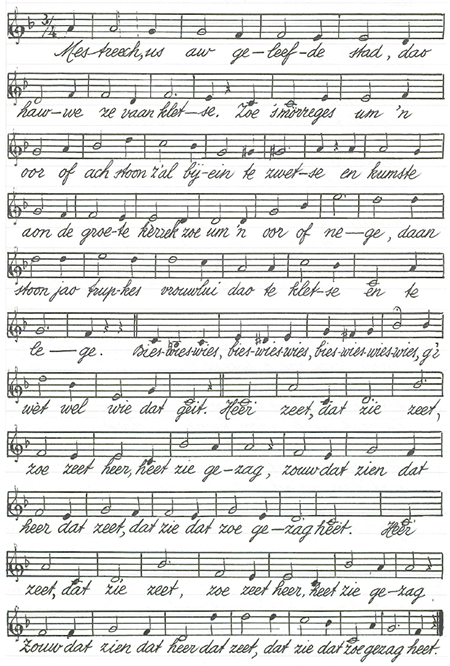 Mestreech, us auw ge-leef-de stad, dao
hauw-we ze vaan klet-se. Zoe 's mörreges um 'n
oor of ach stoon z'al bij-ein te zwet-se en kumste
aon de groe-te kerrek zoe um 'n oor of ne-ge, daan
stoon jao trup-kes vrouwlui dao te klet-se en te
le-ge. Bies-wies-wies, bies-wies-wies, bies-wies-wies-wies, g'r
wèt wel wie dat geit. Heer zeet, dat zie zeet,
zoe zeet heer, heet zie ge-zag, zouw dat zien dat
heer dat zeet, dat zie dat zoe ge-zag heet. Heer
zeet, dat zie zeet, zoe zeet heer, heet zie ge-zag
Zouw dat zien dat heer dat zeet, dat zie dat zoe gezag heet.